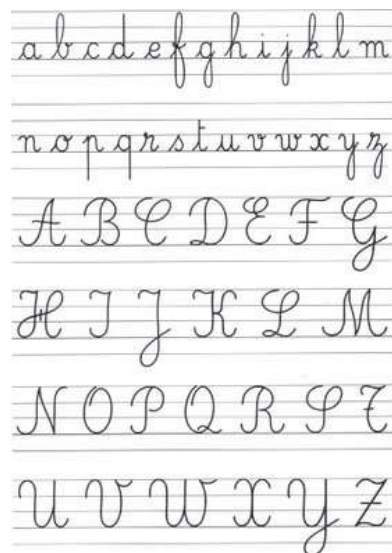 a b c d e f g h i j k l m
n o p q r s t u v w x y z
A B C D E F G
H I J K L M
N O P Q R S T
U V W X Y Z